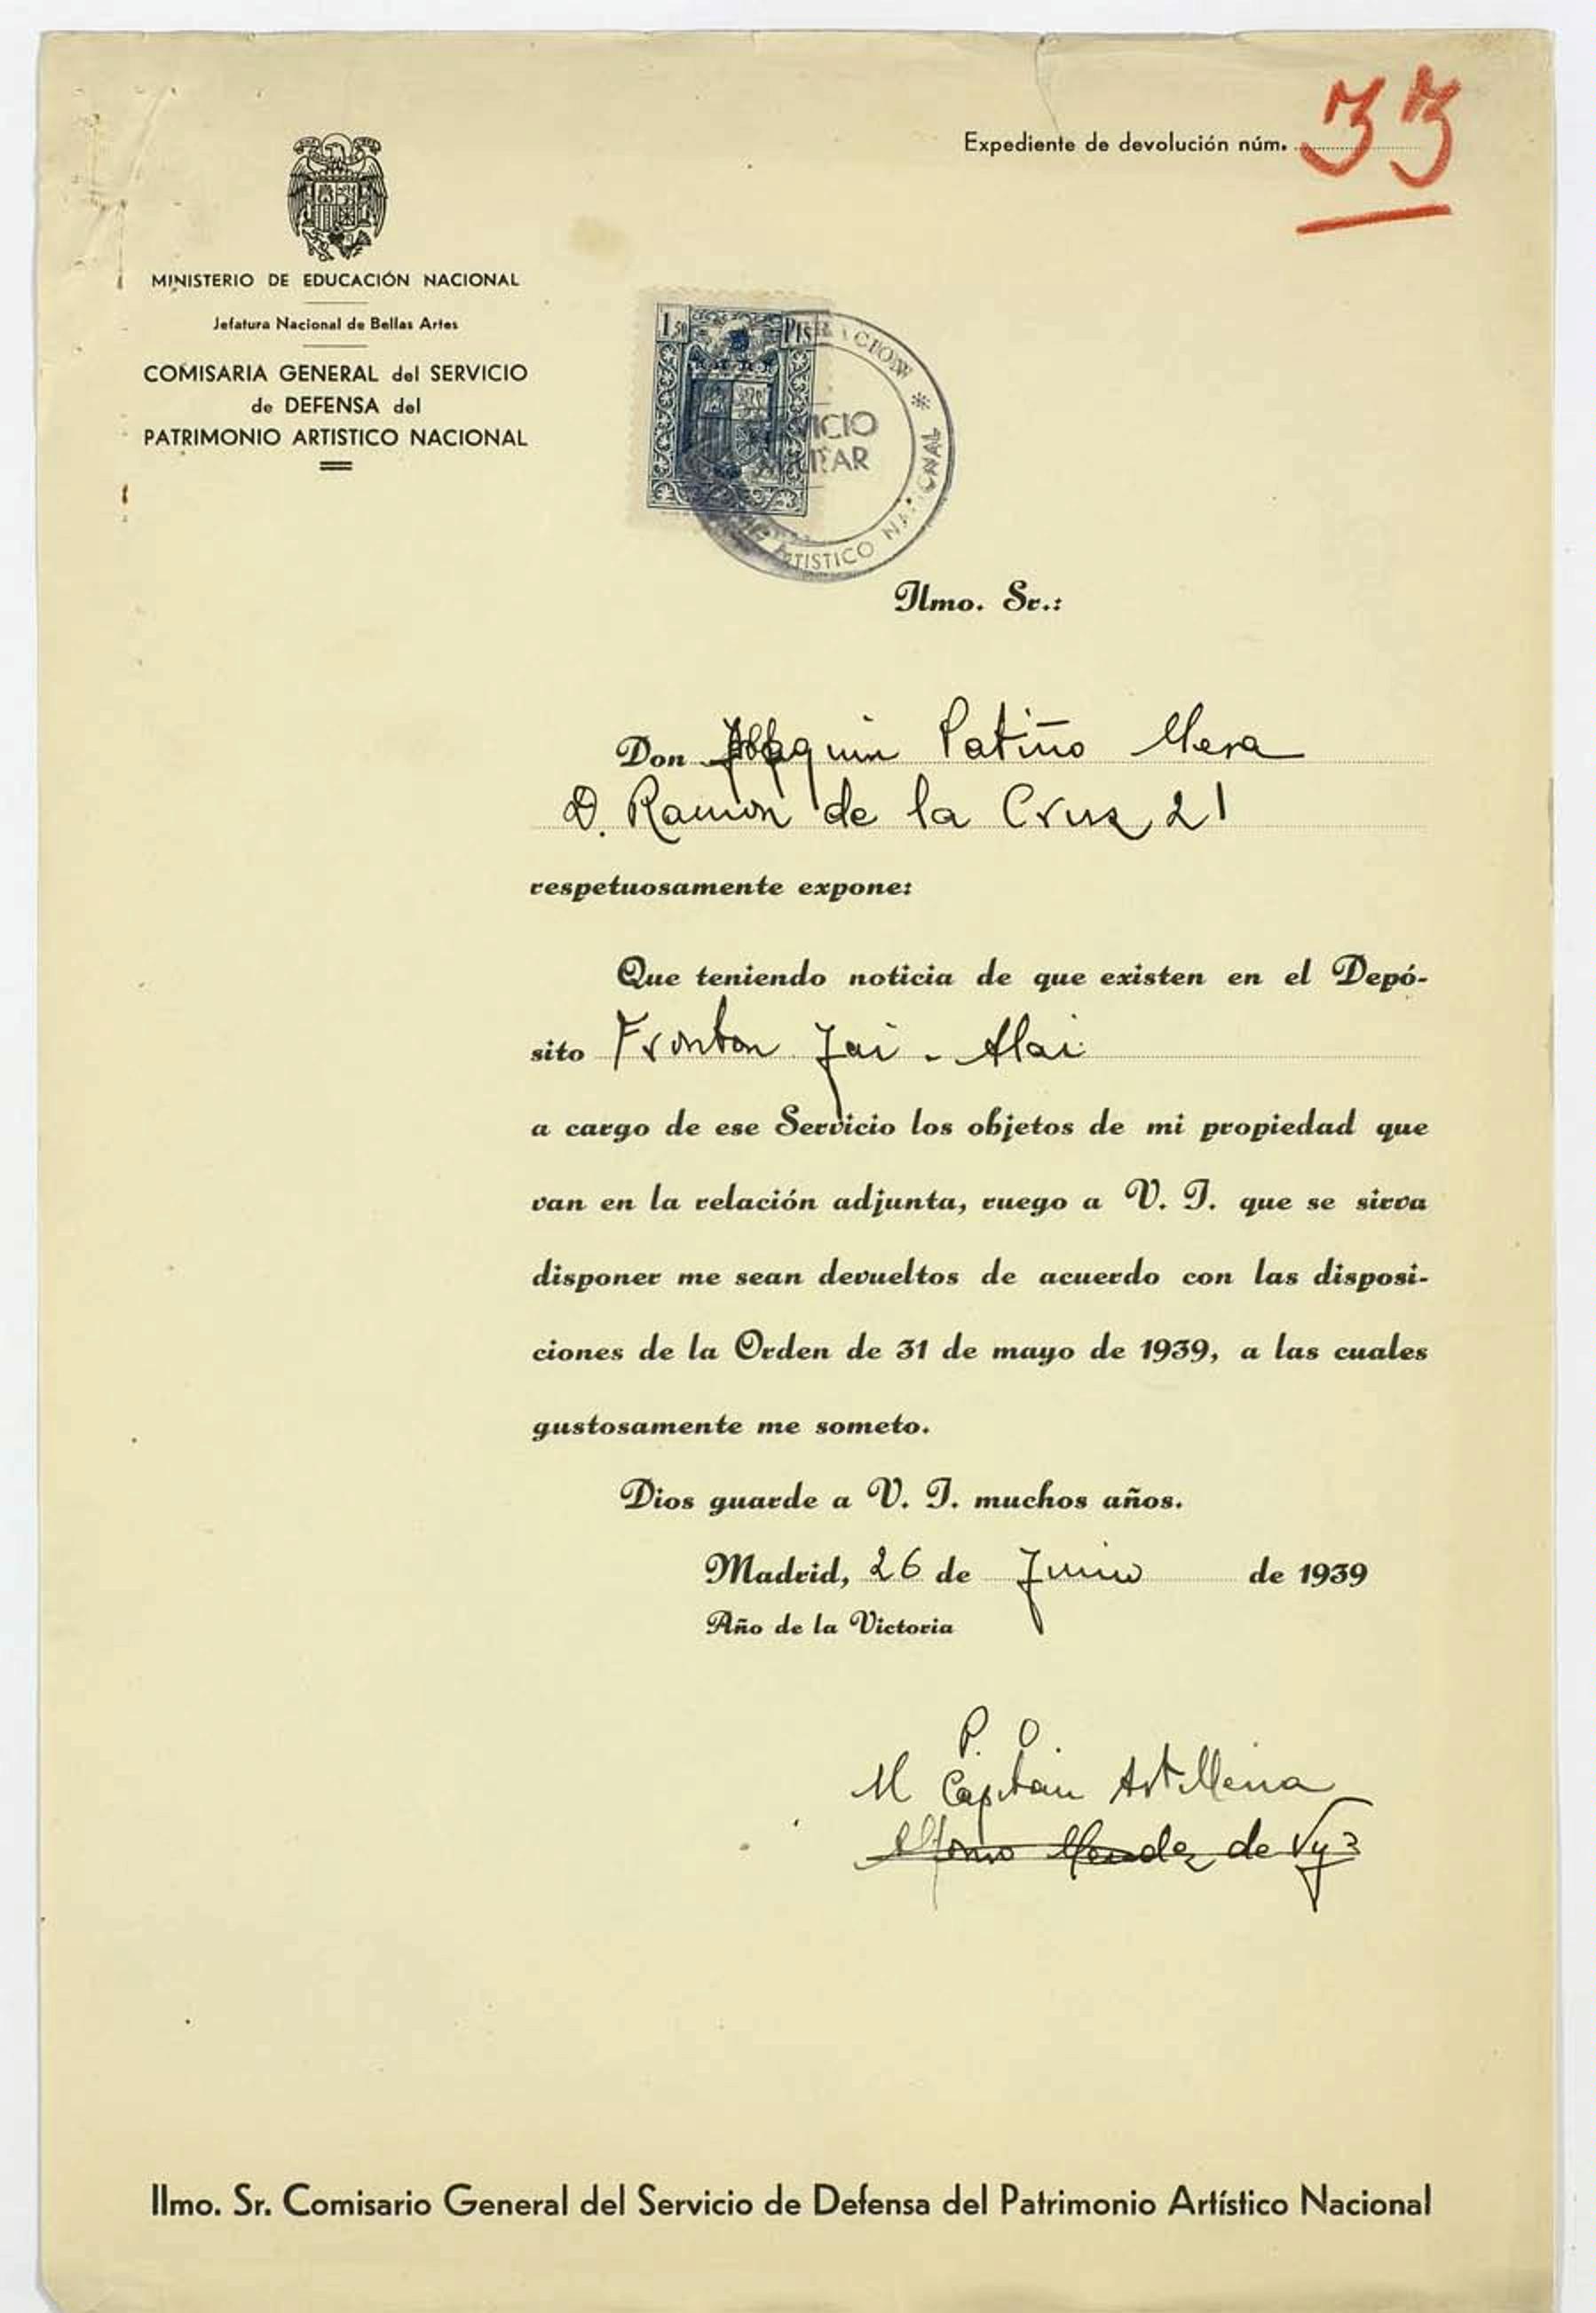 Expediente de devolución núm. 33
MINISTERIO DE EDUCACIÓN NACIONAL
Jefatura Nacional de Bellas Artes
COMISARIA GENERAL del SERVICIO
de DEFENSA del
PATRIMONIO ARTISTICO NACIONAL
1,50 PTS
ARTISTICO NACIONAL
Ilmo. Sr.:
Don Joaquin Patiño Mesa
D. Ramón de la Cruz 21
respetuosamente expone:
Que teniendo noticia de que existen en el Depó-
sito Fronton Jai - Alai
a cargo de ese Servicio los objetos de mi propiedad que
van en la relación adjunta, ruego a V. I. que se sirva
disponer me sean devueltos de acuerdo con las disposi-
ciones de la Orden de 31 de mayo de 1939, a las cuales
gustosamente me someto.
Dios guarde a V. I. muchos años.
Madrid, 26 de Junio de 1939
Año de la Victoria
P. O.
El Capitán Artilleria
Alfonso Mendez de
Ilmo. Sr. Comisario General del Servicio de Defensa del Patrimonio Artístico Nacional